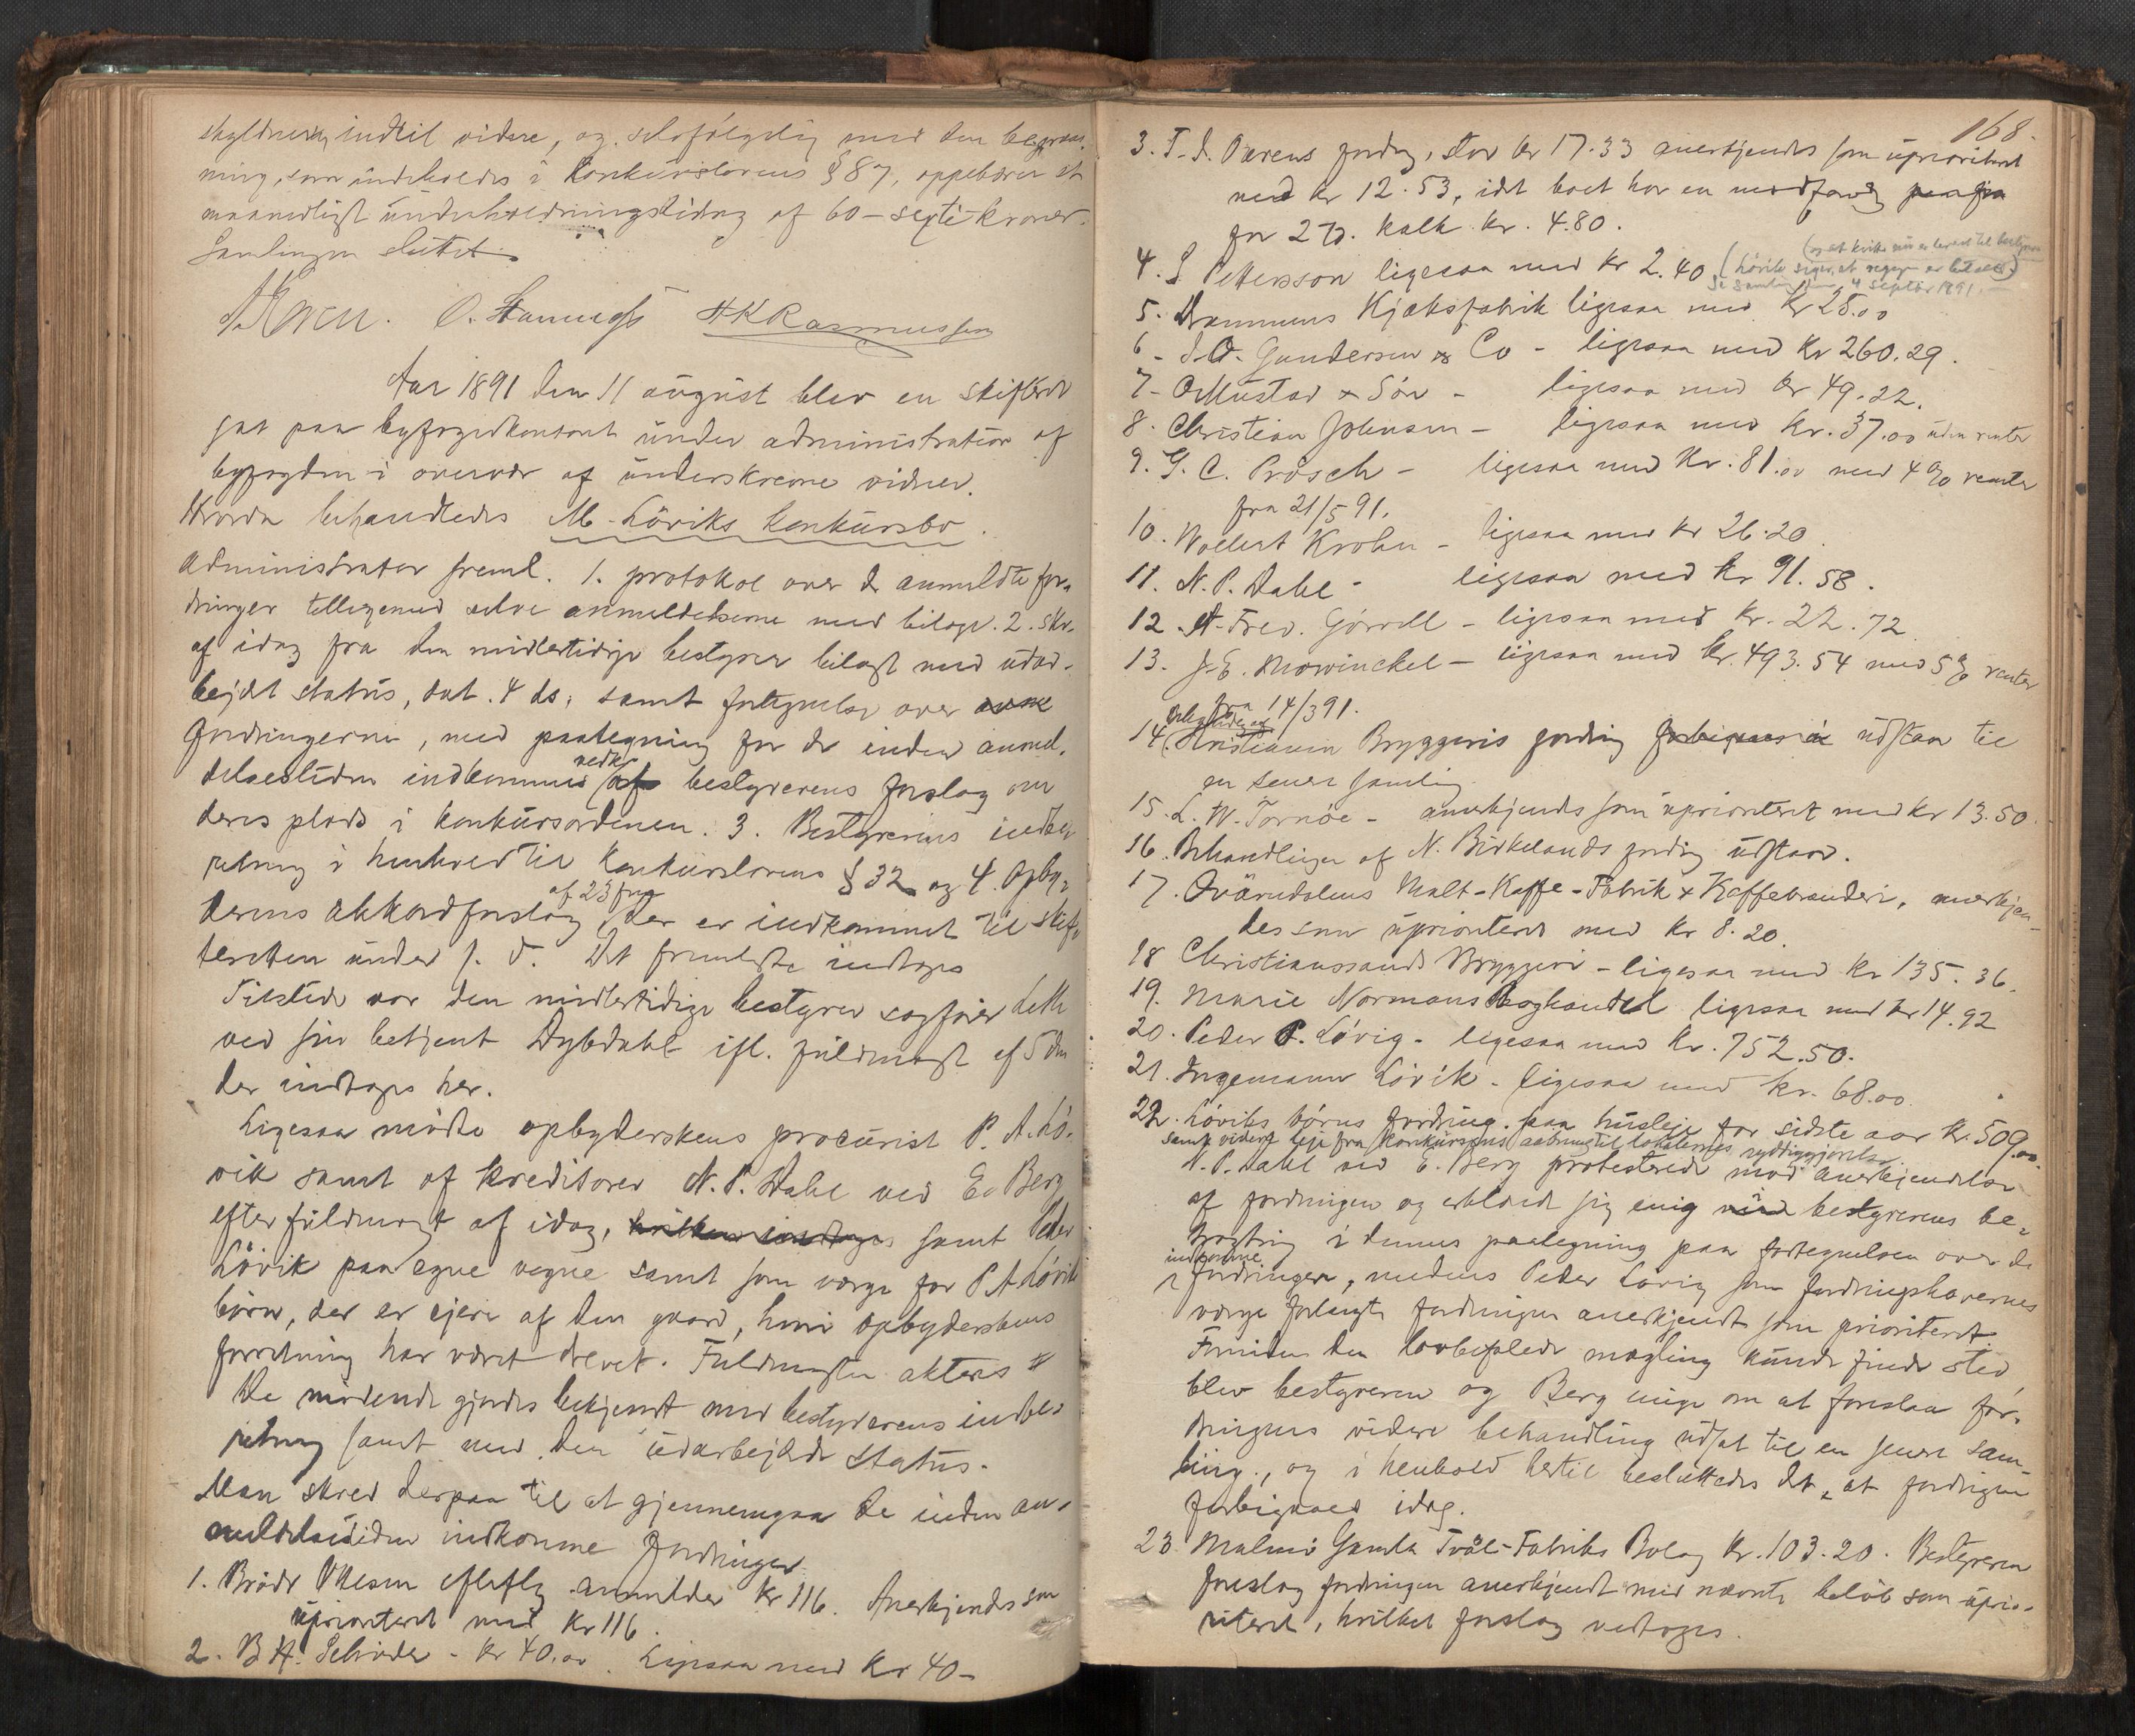 skyldneren indtil videre, og selvfölgelig med den begræns,
ning, som indeholdes i konkurslovens § 87, oppebærer et
maanedligt underholdningsbidrag af 60 - sexti - kroner.
Samlingen sluttet.
O. H K Rasmussen
Aar 1891 den 11 august blev en skifteret
sat paa byfogedkontoret under administration af
byfogden i overvær af underskrevne vidner.
Hvorda behandledes M. Löviks konkursbo.
Administrator freml. 1. protokol over de anmeldte for,
dringer tilligemed selve anmeldelserne med bilage. 2. skr.
af idag fra den midlertidige bestyrer bilagt med udar-
bejdet status, dat. 4 ds, samt fortegnelse over
fordringerne, med paategning for de inden anmel,
delsestiden indkomnes vedk. bestyrerens forslag om
deres plads i konkursordenen. 3. Bestyrerens indbe,
retning i henhold til konkurslovens § 32 og 4. Opby,
derens akkordforslag af 23 f. m. der er indkommet til skif,
teretten under s. d. Det fremlagte indtages
Tilstede var den midlertidige bestyrer sagförer
ved sin betjent Dybdahl ifl. fuldmagt af 5 dm
der indtages her.
Ligesaa mödte opbyderskens procurist P. A. Lö,
vik samt af kreditorer N. P. Dahl ved E. Berg
efter fuldmagt af idag, hvilken indtages samt Peder
Lövik paa egne vegne samt som værge for P A Löviks
börn, der er ejere af den gaard, hvori opbyderskens
forretning har været drevet. Fuldmagten akteres
De mödende gjordes bekjendt med bestyrerens indbe,
retning samt med den udarbejdede status.
Man skred derpaa til at gjennemgaa de inden an,
meldelsestiden indkomne fordringer.
1. Brödr. Olesen efterflg. anmelder kr 116. Anerkjendes som
uprioriteret med kr 116.
2. B H. Schröder - kr 40.00. Ligesaa med kr 40 -
168.
3. T. J. fordrg, stor kr 17.33 anerkjendes som uprioriteret
med kr 12.53, idet boet har en modfordrg
for 2 Td. kalk kr. 4.80.
4. S Pettersson ligesaa med kr 2.40 (Lövik siger, at regngn er betalt)
(og at kvittn nu er leveret til bestyreren
Se samling den 4 septbr 1891. -
5. Drammens Kjæksfabrik ligesaa med kr 28.00
6 - J. O. Gundersen & Co - ligesaa med kr 260.29.
7 - O Mustad & Sön - ligesaa med kr 49.22.
8. Christian Johnsen - ligesaa med kr. 37.00 uden renter
9. G. C. Prösch - ligesaa med kr. 81.00 med 4 % renter
fra 21/5 91.
10. Wollert Krohn - ligesaa med kr 26.20.
11. N. P. Dahl - ligesaa med kr 91.58.
12. A. Fred. Görrell - ligesaa med kr. 22.72.
13. J. E. Mowinckel - ligesaa med kr. 493.54 med 5 % renter
fra 14/3 91.
14 Behandlingen af Christiania Bryggeris fordring udstaar til
en senere samling.
15. L. W. Tornöe - anerkjendes som uprioriteret med kr 13.50.
16. Behandlingen af N. Birkelands fordrg udstaar.
17. Qvärndalens Malt-Kaffe-Fabrik & Kaffebrænderi, anerkjen-
des som uprioriteret med kr 8.20.
18 Christianssands Bryggeri - ligesaa med kr 135.36.
19. Marie Normans Boghandel ligesaa med kr 14.92
20. Peder P. Lövig - ligesaa med kr. 752.50.
21. Ingemann Lövik - ligesaa med kr. 68.00.
22. Löviks börns fordring paa husleje for sidste aar kr. 509.00.
samt videre leje fra konkursens aabning til lokalernes ryddiggjörelse
N. P. Dahl ved E. Berg protesterede mod anerkjendelse
af fordringen og erklæred sig enig med bestyrerens be,
tragtning i dennes paategning paa fortegnelsen over de
indkomne fordringer, medens Peder Lövig som fordringshavernes
værge forlangte fordringen anerkjendt som prioriteret.
Forinden den lovbefalede mægling kunde finde sted,
blev bestyreren og Berg enige om at foreslaa for,
dringens videre behandling udsat til en senere sam-
ling, og i henhold hertil besluttedes det, at fordringen
forbigaaes idag.
23. Malmö Gamla Tvål-Fabriks Bolag kr. 103.20. Bestyreren
foreslog fordringen anerkjendt med nævnte belöb som uprio-
riteret, hvilket forslag vedtoges.